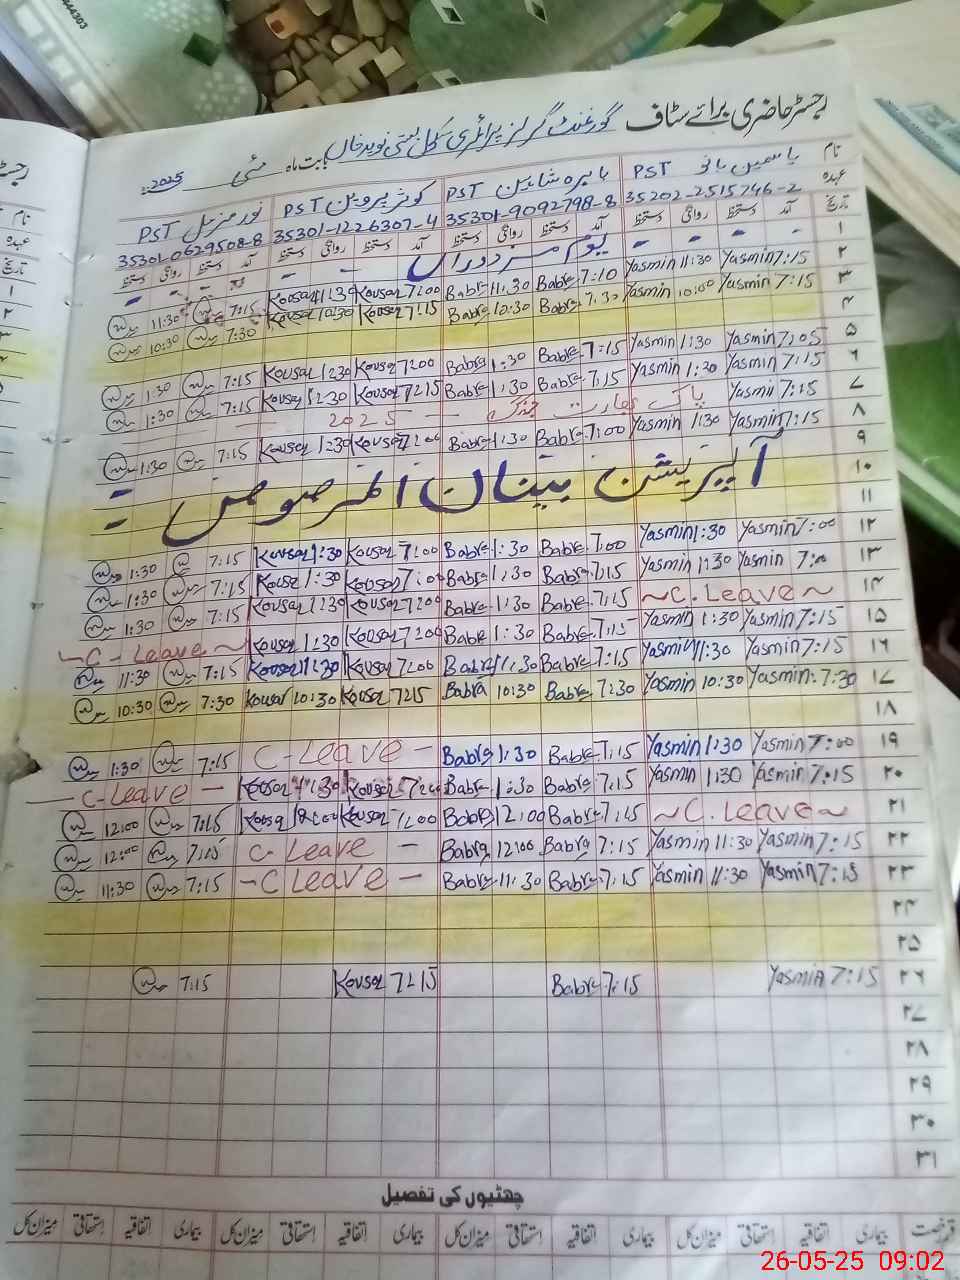 رجسٹر حاضری برائے سٹاف گورنمنٹ گرلز پرائمری سکول بستی نوید خاں
بابت ماہ مئی 2025
نام یاسمین بانو PST بابرہ شاہین PST کوثر پروین PST نور مزمل PST
عہدہ 35202-2515746-2 35301-9092798-8 35301-1226307-4 35301-0629508-8
تاریخ آمد دستخط روانگی دستخط آمد دستخط روانگی دستخط آمد دستخط روانگی دستخط آمد دستخط روانگی دستخط
۱ یوم مزدوراں
۲ Yasmin 7:15 Yasmin 11:30 Babra 7:10 Babra 11:30 Kousar 7:00 Kousar 11:30 7:15 11:30
۳ Yasmin 7:15 Yasmin 10:00 Babra 7:30 Babra 10:30 Kousar 7:15 Kousar 10:30 7:30 10:30
۴
۵ Yasmin 7:05 Yasmin 1:30 Babra 7:15 Babra 1:30 Kousar 7:00 Kousar 1:30 7:15 1:30
۶ Yasmin 7:15 Yasmin 1:30 Babra 7:15 Babra 1:30 Kousar 7:15 Kousar 1:30 7:15 1:30
۷ Yasmin 7:15 پاک بھارت جنگ 2025
۸ Yasmin 7:15 Yasmin 1:30 Babra 7:00 Babra 1:30 Kousar 7:00 Kousar 1:30 7:15 1:30
۹
۱۰ آپریشن بنیان المرصوص
۱۱
۱۲ Yasmin 7:00 Yasmin 1:30 Babra 7:00 Babra 1:30 Kousar 7:00 Kousar 1:30 7:15 1:30
۱۳ Yasmin 7:00 Yasmin 1:30 Babra 7:15 Babra 1:30 Kousar 7:00 Kousar 1:30 7:15 1:30
۱۴ C. Leave Babra 7:15 Babra 1:30 Kousar 7:00 Kousar 1:30 7:15 1:30
۱۵ Yasmin 7:15 Yasmin 1:30 Babra 7:15 Babra 1:30 Kousar 7:00 Kousar 1:30 C-Leave
۱۶ Yasmin 7:15 Yasmin 11:30 Babra 7:15 Babra 11:30 Kousar 7:00 Kousar 11:30 7:15 11:30
۱۷ Yasmin 7:30 Yasmin 10:30 Babra 7:30 Babra 10:30 Kousar 7:15 Kousar 10:30 7:30 10:30
۱۸
۱۹ Yasmin 7:00 Yasmin 1:30 Babra 7:15 Babra 1:30 C-Leave 7:15 1:30
۲۰ Yasmin 7:15 Yasmin 1:30 Babra 7:15 Babra 1:30 Kousar 7:00 Kousar 1:30 C-Leave
۲۱ C. Leave Babra 7:15 Babra 12:00 Kousar 7:00 Kousar 12:00 7:15 12:00
۲۲ Yasmin 7:15 Yasmin 11:30 Babra 7:15 Babra 12:00 C-Leave 7:15 12:00
۲۳ Yasmin 7:15 Yasmin 11:30 Babra 7:15 Babra 11:30 C Leave 7:15 11:30
۲۴
۲۵
۲۶ Yasmin 7:15 Babra 7:15 Kousar 7:15 7:15
۲۷
۲۸
۲۹
۳۰
۳۱
چھٹیوں کی تفصیل
بیماری اتفاقیہ استحقاقی میزان کل بیماری اتفاقیہ استحقاقی میزان کل بیماری اتفاقیہ استحقاقی میزان کل بیماری اتفاقیہ استحقاقی میزان کل
26-05-25 09:02